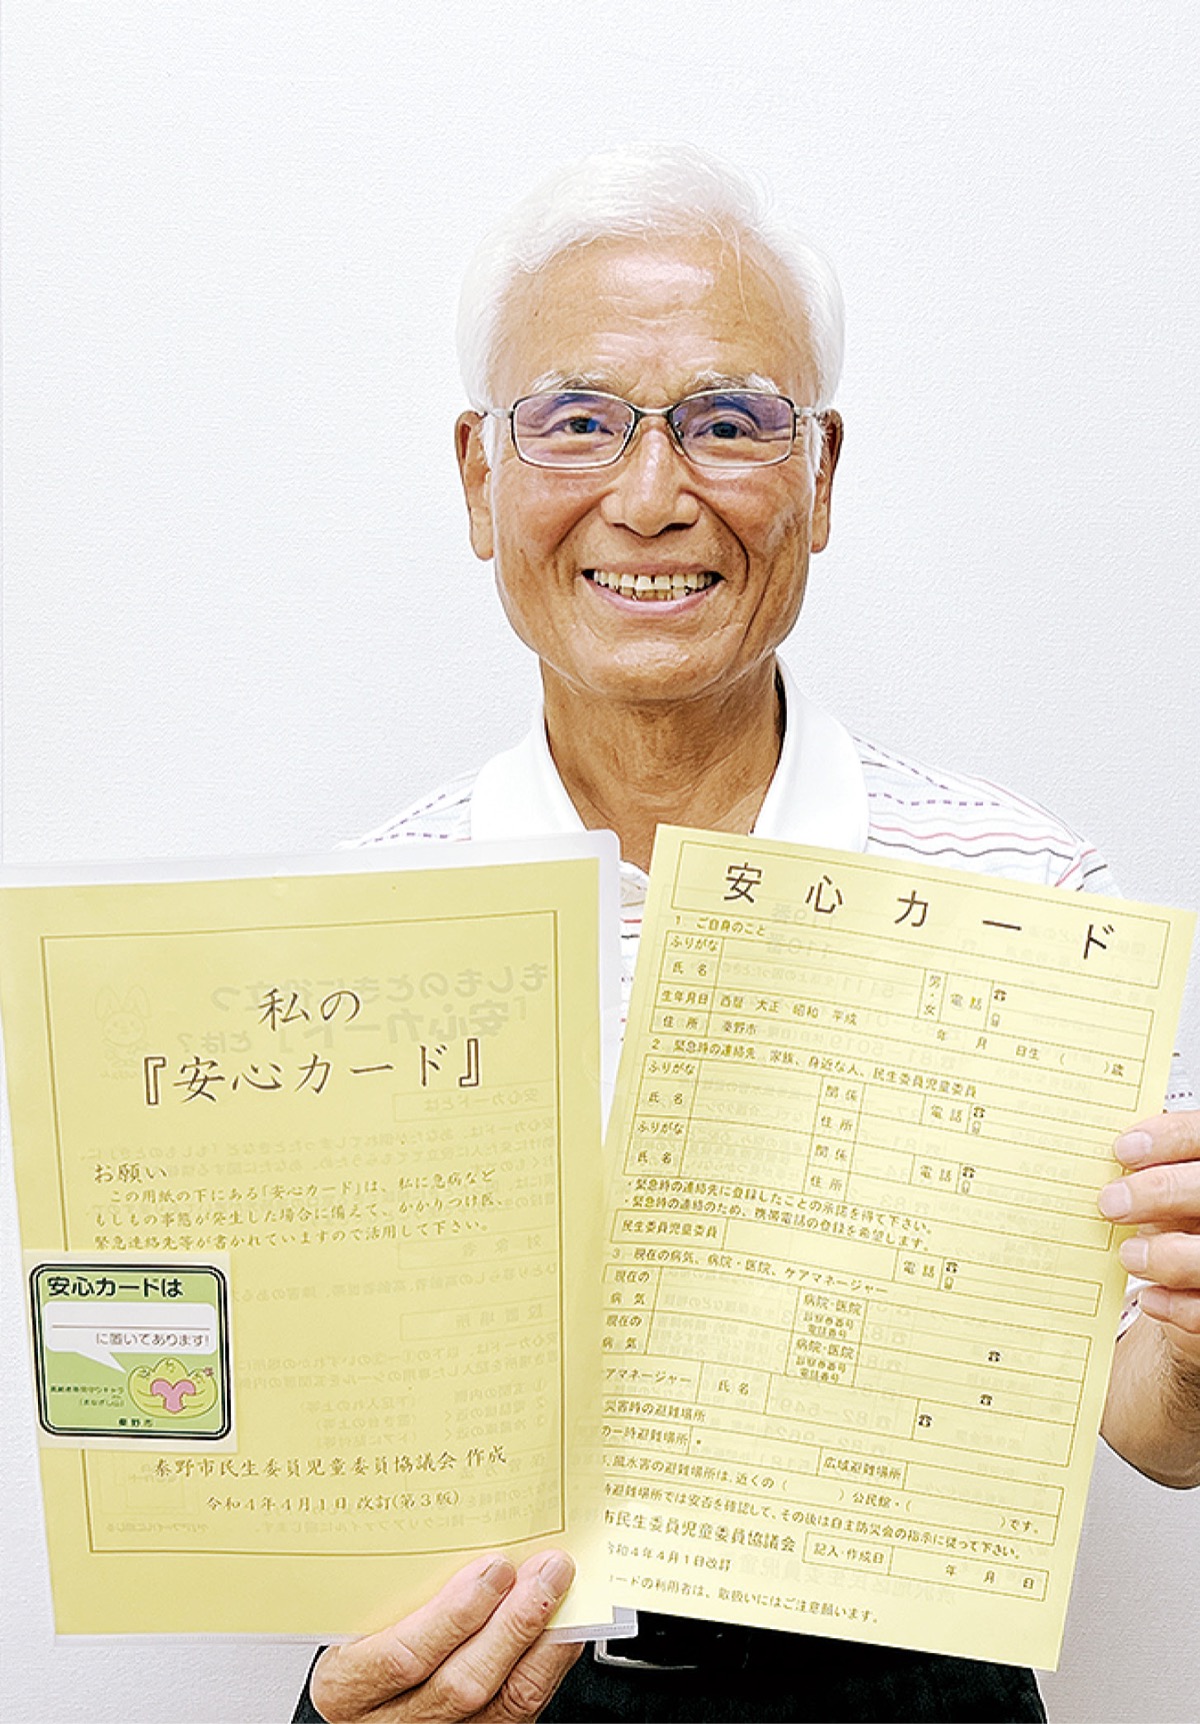 私の
『安心カード』
お願い
この用紙の下にある「安心カード」は、私に急病など
もしもの事態が発生した場合に備えて、かかりつけ医、
緊急連絡先等が書かれていますので活用して下さい。
安心カードは
に置いてあります!
秦野市
秦野市民生委員児童委員協議会 作成
令和4年4月1日 改訂(第3版)
安心カード
1. ご自身のこと
ふりがな
氏 名
男・女
電 話 ☎
生年月日 西暦 大正 昭和 平成
年 月 日生 ( )歳
住 所 秦野市
2. 緊急時の連絡先 家族、身近な人、民生委員児童委員
ふりがな 関 係
氏 名 電 話 ☎
住 所
ふりがな 関 係
氏 名 電 話 ☎
住 所
・緊急時の連絡先に登録したことの承諾を得て下さい。
・緊急時の連絡のため、携帯電話の登録を希望します。
民生委員児童委員 電 話 ☎
3. 現在の病気、病院・医院、ケアマネージャー
現在の 病院・医院
病 気 診察券番号
電話番号 ☎
現在の 病院・医院
病 気 診察券番号
電話番号 ☎
アマネージャー 氏 名 ☎
災害時の避難場所
一時避難場所 広域避難場所
風水害の避難場所は、近くの ( ) 公民館・( )です。
避難場所では安否を確認して、その後は自主防災会の指示に従って下さい。
市民生委員児童委員協議会 記入・作成日 年 月 日
令和4年4月1日改訂
カードの利用者は、取扱いにはご注意願います。